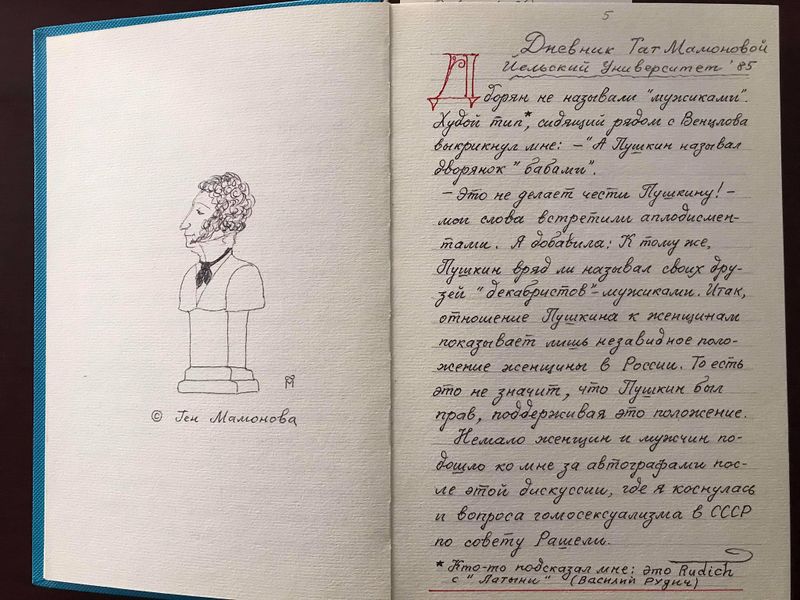 5
Дневник Тат Мамоновой
Йельский Университет '85
Дворян не называли "мужиками".
Худой тип*, сидящий рядом с Венцлова
выкрикнул мне: – "А Пушкин называл
дворянок "бабами".
– Это не делает чести Пушкину! –
мои слова встретили аплодисмен-
тами. Я добавила: К тому же,
Пушкин вряд ли называл своих дру-
зей "декабристов" – мужиками. Итак,
отношение Пушкина к женщинам
показывает лишь незавидное поло-
жение женщины в России. То есть
это не значит, что Пушкин был
прав, поддерживая это положение.
Немало женщин и мужчин по-
дошло ко мне за автографами пос-
ле этой дискуссии, где я коснулась
и вопроса гомосексуализма в СССР
по совету Рашели.
* Кто-то подсказал мне: это Rudich
с "Латыни" (Василий Рудич)
© Ген Мамонова